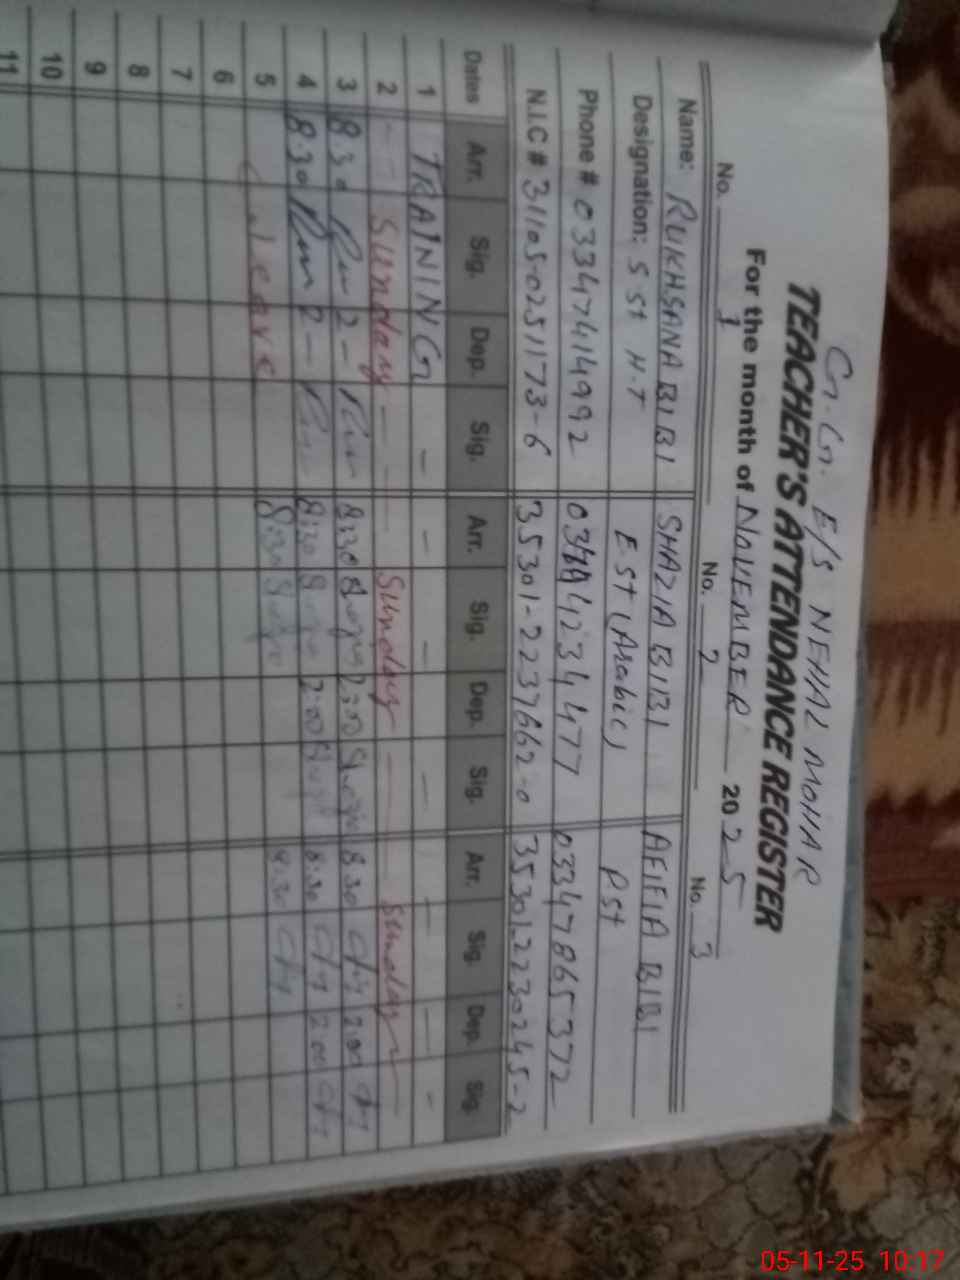 G.G. E/S NEHAL MOHAR
TEACHER'S ATTENDANCE REGISTER
For the month of NOVEMBER 2025
No. 1 No. 2 No. 3
Name: RUKHSANA BIBI SHAZIA BIBI AFIFIA BIBI
Designation: S St H.T E.St (Arabic) PSt
Phone # 03347414992 4234477 03347865372
N.I.C # 31105-0251173-6 35301-2237662-0 35301-2230245-2
Dates Arr. Sig. Dep. Sig. Arr. Sig. Dep. Sig. Arr. Sig. Dep. Sig.
1 TRAINING - - - - - - -
2 Sunday Sunday Sunday
3 8.30 2- 8:30 2:00 8.30 2:00
4 8.30 2- 8:30 2:00 8:30 2:00
5 Leave 8:30 8:30
6
7
8
9
10
11
05-11-25 10:17